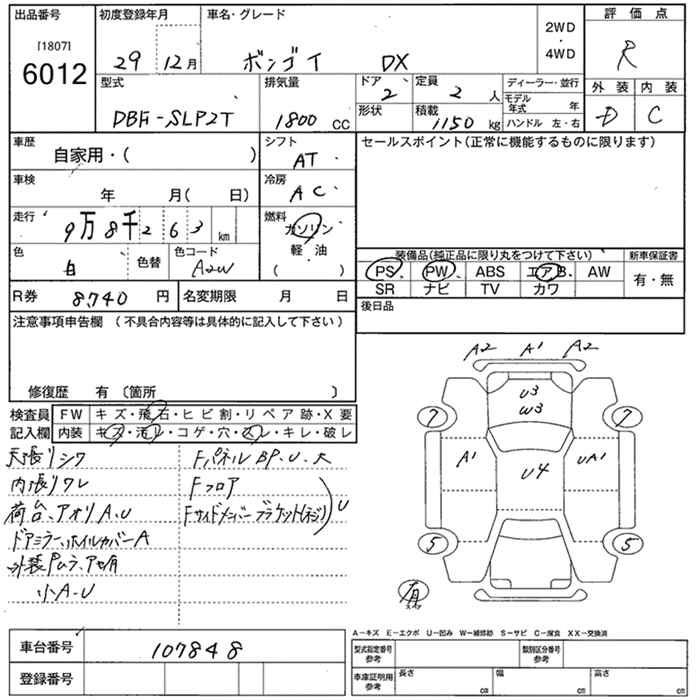 出品番号 初度登録年月 車名・グレード 2WD・4WD 評価点
[1807]
6012 29 12月 ボンゴT DX R
型式 排気量 ドア 2 定員 2 人 ディーラー・並行 外装 内装
DBF-SLP2T 1800 CC 形状 積載 1150 kg モデル年式 年 D C
ハンドル 左・右
車歴 自家用・( ) シフト AT セールスポイント(正常に機能するものに限ります)
車検 年 月( 日) 冷房 AC
走行 9万8千263 km 燃料 ガソリン
軽油
( )
色 白 色替 色コード A2W
装備品(純品に限り丸をつけて下さい) 新車保証書
PS PW ABS エアB AW 有・無
SR ナビ TV カワ
R券 8,740 円 名変期限 月 日 後日品
注意事項申告欄 (不具合内容等は具体的に記入して下さい)
修復歴 有 〔箇所 〕
検査員 FW キズ・飛石・ヒビ割・リペア跡・X要
記入欄 内装 キズ・汚レ・コゲ・穴・スレ・キレ・破レ
天張りシワ FパネルBP.U.大
内張りワレ Fフロア
荷台、アオリA.U Fサイドメンバーブラケット(ネジ) U
ドアミラー、ホイルカバーA
外装Pムラ、アセ有
小A.U
A2 A1 A2
U3
W3
7 7
A1 U4 UA1
5 5
有
A-キズ E-エクボ U-凹み W-補修跡 S-サビ C-腐食 XX-交換済
車台番号 107848
登録番号
型式指定番号 参考 類別区分番号 参考
車庫証明用 参考 長さ cm 幅 cm 高さ cm